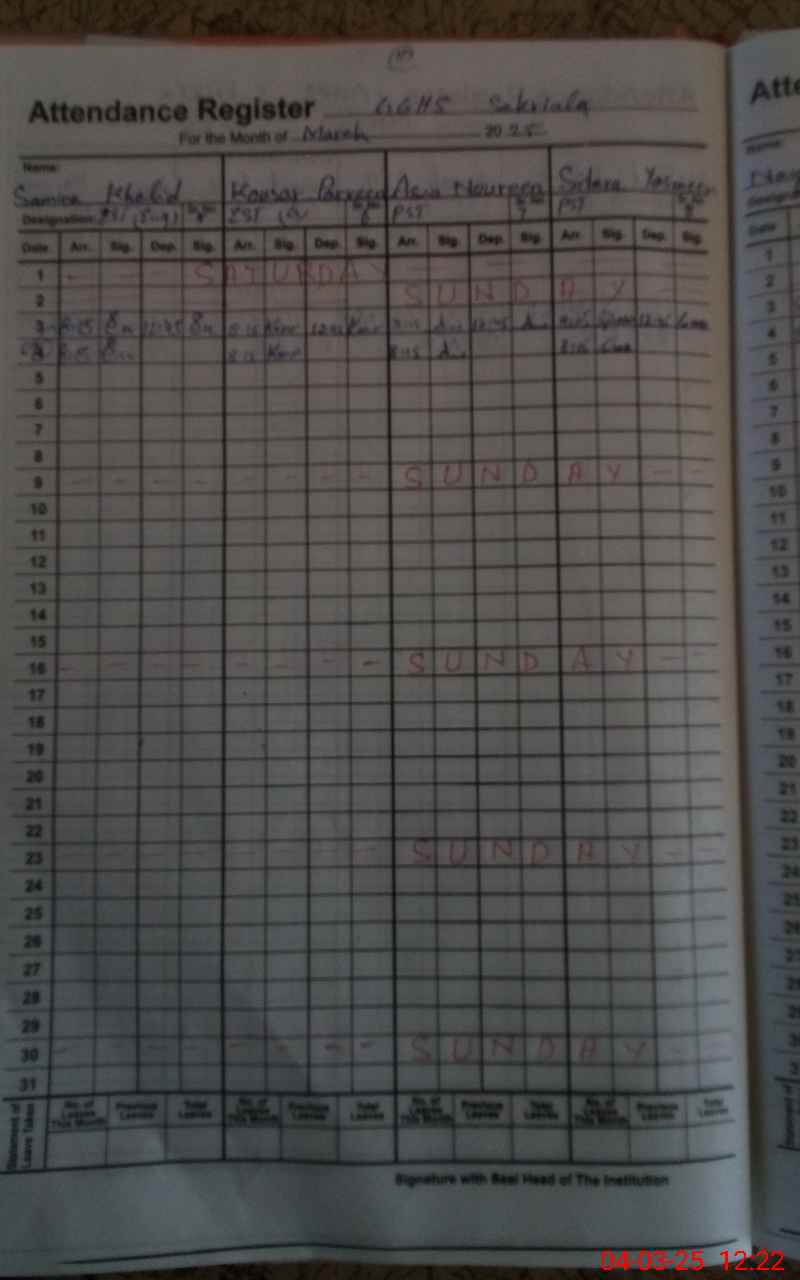 Attendance Register GGHS Sakrila
For the Month of March 2025
Name:
Samina Khalid Kousar Parveen Asia Noureen Sitara Yasmeen
Designation: EST PST PST
Date Arr. Sig. Dep. Sig. Arr. Sig. Dep. Sig. Arr. Sig. Dep. Sig. Arr. Sig. Dep. Sig.
1 - - - SATURDAY - - -
2 SUNDAY -
3 8:15 12:45 8:15 12:45 8:15 12:45 8:15 12:45
4 8:15 8:15 8:15 8:15
5
6
7
8
9 - - - - - - - - SUNDAY - -
10
11
12
13
14
15
16 - - - - - - - - SUNDAY - -
17
18
19
20
21
22
23 - - - - - - - - SUNDAY - -
24
25
26
27
28
29
30 - - - - - - - - SUNDAY - -
31
Statement of Leave Taken
No. of Leaves This Month Previous Leaves Total Leaves No. of Leaves This Month Previous Leaves Total Leaves No. of Leaves This Month Previous Leaves Total Leaves No. of Leaves This Month Previous Leaves Total Leaves
Signature with Seal Head of The Institution
Atte
Name:
Date
1
2
3
4
5
6
7
8
9
10
11
12
13
14
15
16
17
18
19
20
21
22
23
24
25
26
27
28
29
04-03-25 12:22